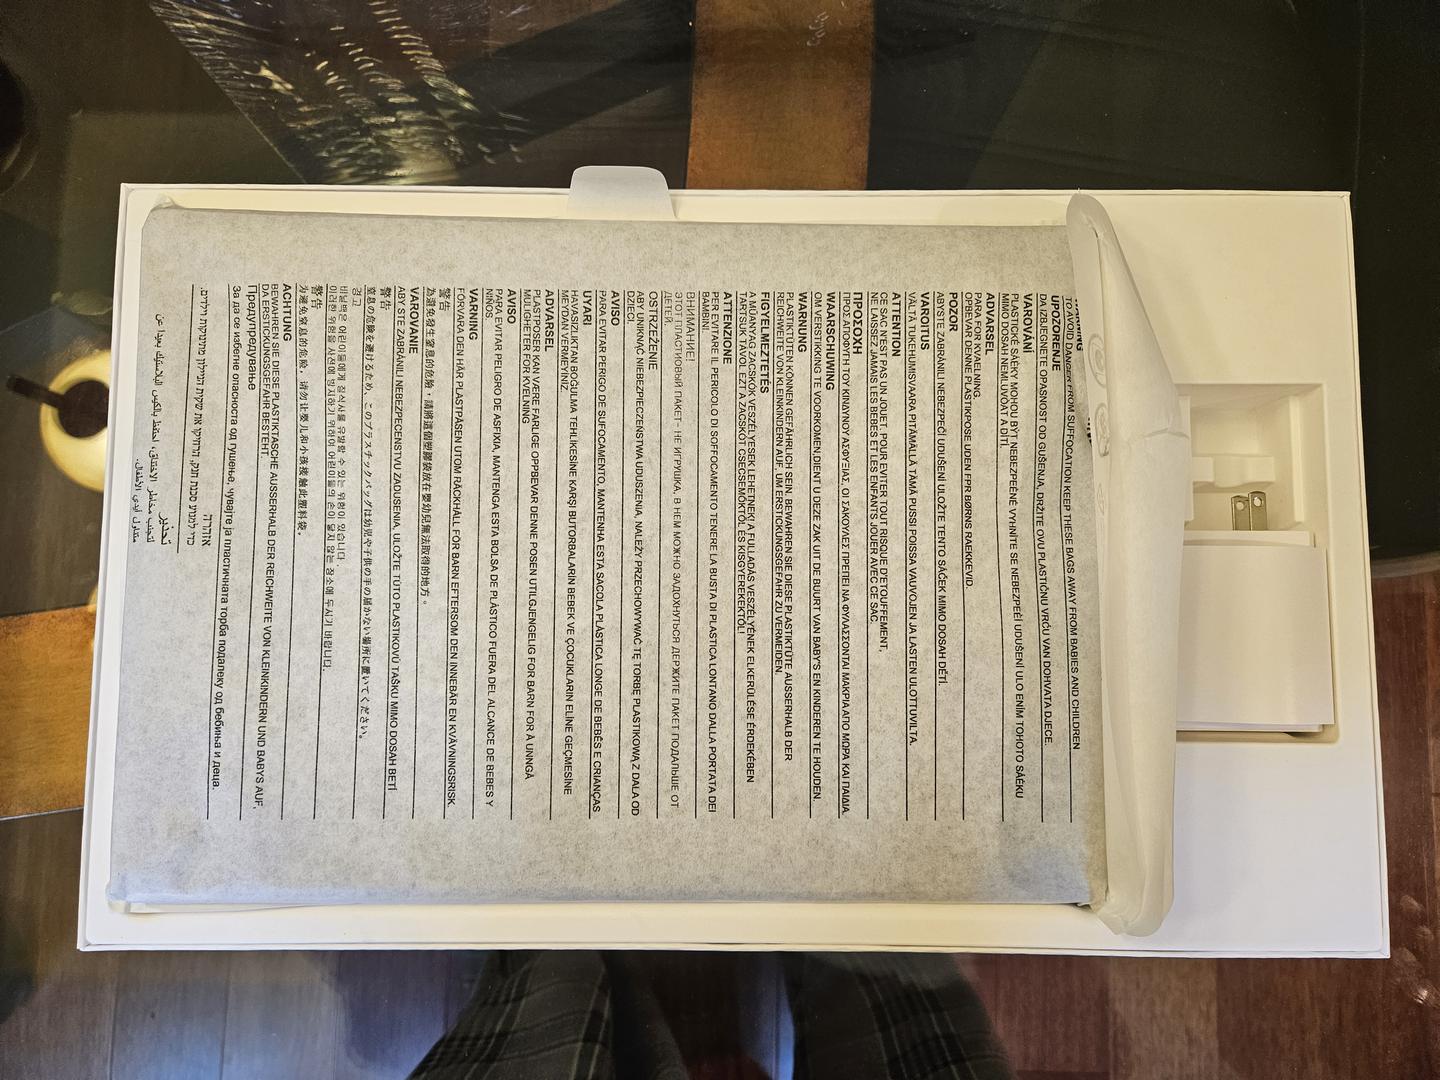 WARNING
TO AVOID DANGER FROM SUFFOCATION KEEP THESE BAGS AWAY FROM BABIES AND CHILDREN
UPOZORENJE
DA IZBJEGNETE OPASNOST OD GUŠENJA, DRŽITE OVU PLASTIČNU VRĆU VAN DOHVATA DJECE.
VAROVÁNÍ
PLASTICKÉ SÁÉKY MOHOU BÝT NEBEZPEĚNÉ VYHNĬTE SE NEBEZPEÉÍ UDUŠENÍ ULO ENÍM TOHOTO SÁÉKU
MIMO DOSAH NEMLUVÒAT A DÍTÍ.
ADVARSEL
PARA FOR KVAELNING.
OPBEVAR DENNE PLASTIKPOSE UDEN FPR BØRNS RAEKKEVID.
POZOR
ABYSTE ZABRÁNILI NEBEZPEČÍ UDUŠENÍ ULOŽTE TENTO SÁČEK MIMO DOSAH DĚTÍ.
VAROITUS
VÄLTÄ TUKEHUMISVAARA PITÄMÄLLÄ TÄMÄ PUSSI POISSA VAUVOJEN JA LASTEN ULOTTUVILTA.
ATTENTION
CE SAC N'EST PAS UN JOUET. POUR EVITER TOUT RISQUE D'ETOUFFEMENT,
NE LAISSEZ JAMAIS LES BEBES ET LES ENFANTS JOUER AVEC CE SAC.
ΠΡΟΣΟΧΗ
ΠΡΟΣ ΑΠΟΦΥΓΗ ΤΟΥ ΚΙΝΔΥΝΟΥ ΑΣΦΥΞΙΑΣ, ΟΙ ΣΑΚΟΥΛΕΣ ΠΡΕΠΕΙ ΝΑ ΦΥΛΑΣΣΟΝΤΑΙ ΜΑΚΡΙΑ ΑΠΟ ΜΩΡΑ ΚΑΙ ΠΑΙΔΙΑ.
WAARSCHUWING
OM VERSTIKKING TE VOORKOMEN,DIENT U DEZE ZAK UIT DE BUURT VAN BABY'S EN KINDEREN TE HOUDEN.
WARNUNG
PLASTIKTÜTEN KÖNNEN GEFÄHRLICH SEIN. BEWAHREN SIE DIESE PLASTIKTÜTE AUSSERHALB DER
REICHWEITE VON KLEINKINDERN AUF, UM ERSTICKUNGSGEFAHR ZU VERMEIDEN.
FIGYELMEZTETÉS
A MŰANYAG ZACSKÓK VESZÉLYESEK LEHETNEK! A FULLADÁS VESZÉLYÉNEK ELKERÜLÉSE ÉRDEKÉBEN
TARTSUK TÁVOL EZT A ZACSKÓT CSECSEMŐKTŐL ÉS KISGYEREKEKTŐL!
ATTENZIONE
PER EVITARE IL PERICOLO DI SOFFOCAMENTO TENERE LA BUSTA DI PLASTICA LONTANO DALLA PORTATA DEI
BAMBINI.
ВНИМАНИЕ!
ЭТОТ ПЛАСТИКОВЫЙ ПАКЕТ - НЕ ИГРУШКА, В НЕМ МОЖНО ЗАДОХНУТЬСЯ. ДЕРЖИТЕ ПАКЕТ ПОДАЛЬШЕ ОТ
ДЕТЕЙ.
OSTRZEŻENIE
ABY UNIKNĄĆ NIEBEZPIECZEŃSTWA UDUSZENIA, NALEŻY PRZECHOWYWAĆ TĘ TORBĘ PLASTIKOWĄ Z DALA OD
DZIECI.
AVISO
PARA EVITAR PERIGO DE SUFOCAMENTO, MANTENHA ESTA SACOLA PLÁSTICA LONGE DE BEBÊS E CRIANÇAS
UYARI
HAVASIZLIKTAN BOĞULMA TEHLİKESİNE KARŞI BUTORBALARIN BEBEK VE ÇOCUKLARIN ELİNE GEÇMESİNE
MEYDAN VERMEYİNİZ.
ADVARSEL
PLASTPOSER KAN VÆRE FARLIGE OPPBEVAR DENNE POSEN UTILGJENGELIG FOR BARN FOR Å UNNGÅ
MULIGHETER FOR KVELNING
AVISO
PARA EVITAR PELIGRO DE ASFIXIA, MANTENGA ESTA BOLSA DE PLÁSTICO FUERA DEL ALCANCE DE BEBES Y
NIÑOS.
VARNING
FÖRVARA DEN HÄR PLASTPÅSEN UTOM RÄCKHÅLL FÖR BARN EFTERSOM DEN INNEBÄR EN KVÄVNINGSRISK.
警告
為避免發生窒息的危險，請將這個塑膠袋放在嬰幼兒無法取得的地方。
VAROVANIE
ABY STE ZABRÁNILI NEBEZPEČENSTVU ZADUSENIA, ULOŽTE TÚTO PLASTIKOVÚ TAŠKU MIMO DOSAH DETÍ
警告
窒息の危険を避けるため、このプラスチックバッグは幼児や子供の手の届かない場所に置いてください。
경고
비닐백은 어린이들에게 질식사를 유발할 수 있는 위험이 있습니다.
이러한 위험을 사전에 방지하기 위하여 어린이들의 손이 닿지 않는 장소에 두시기 바랍니다.
警告
为避免窒息的危险，请勿让婴儿和小孩接触此塑料袋。
ACHTUNG
BEWAHREN SIE DIESE PLASTIKTASCHE AUSSERHALB DER REICHWEITE VON KLEINKINDERN UND BABYS AUF,
DA ERSTICKUNGSGEFAHR BESTEHT.
Предупредување
За да се избегне опасноста од гушење, чувајте ја пластичната торба подалеку од бебиња и деца.
אזהרה
כדי למנוע סכנת חנק, הרחיקו את שקיות הניילון מתינוקות וילדים.
تحذير
لتجنب مخاطر الاختناق، احتفظ بالكيس البلاستيك بعيدا عن
متناول أيدي الأطفال.